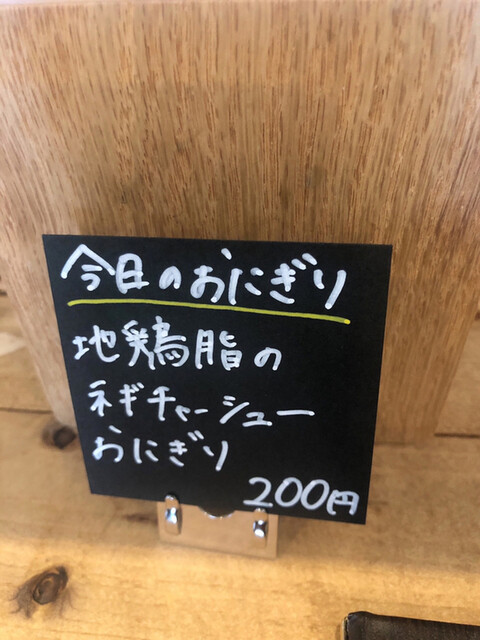 今日のおにぎり
地鶏脂の
ネギチャーシュー
おにぎり
200円